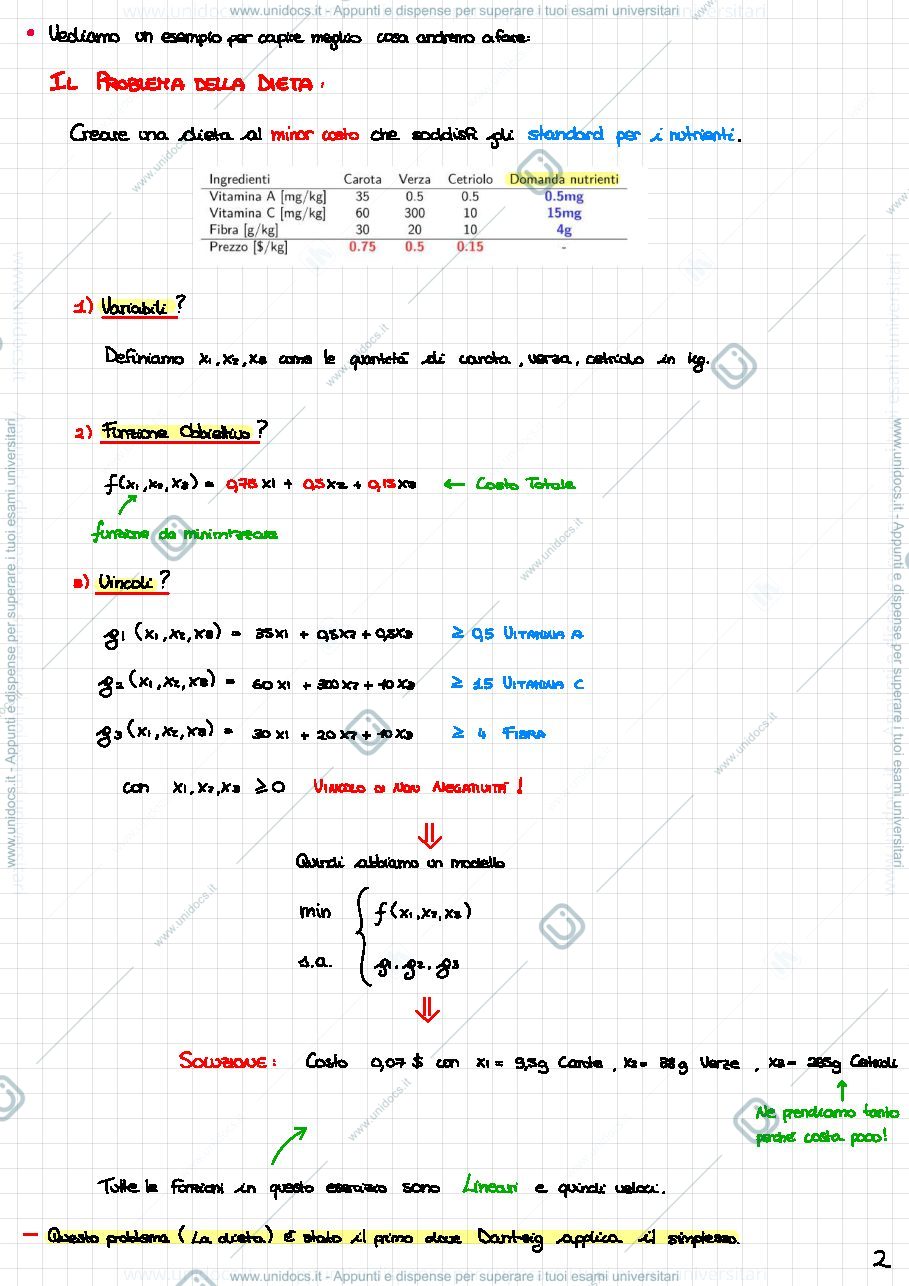 www.unidocs.it - Appunti e dispense per superare i tuoi esami universitari
• Vediamo un esempio per capire meglio cosa andremo a fare:
IL PROBLEMA DELLA DIETA:
Creare una dieta al minor costo che soddisfi gli standard per i nutrienti.
Ingredienti Carota Verza Cetriolo Domanda nutrienti
Vitamina A [mg/kg] 35 0.5 0.5 0.5mg
Vitamina C [mg/kg] 60 300 10 15mg
Fibra [g/kg] 30 20 10 4g
Prezzo [$/kg] 0.75 0.5 0.15 -
1) Variabili?
Definiamo x1, x2, x3 come le quantità di carota, verza, cetriolo in kg.
2) Funzione Obbiettivo?
f(x1, x2, x3) = 0,75 x1 + 0,5 x2 + 0,15 x3 ← Costo Totale
funzione da minimizzare
3) Vincoli?
g1 (x1, x2, x3) = 35x1 + 0,5x2 + 0,5x3 ≥ 0,5 VITAMINA A
g2 (x1, x2, x3) = 60x1 + 300x2 + 10x3 ≥ 15 VITAMINA C
g3 (x1, x2, x3) = 30x1 + 20x2 + 10x3 ≥ 4 FIBRA
con x1, x2, x3 ≥ 0 VINCOLO DI NON NEGATIVITÀ!
⇓
Quindi abbiamo un modello
min { f(x1, x2, x3)
s.a. g1, g2, g3
⇓
SOLUZIONE: Costo 0,07 $ con x1 = 9,5g Carote, x2 = 38g Verze, x3 = 285g Cetrioli
Ne prendiamo tanto
perché costa poco!
Tutte le funzioni in questo esercizio sono Lineari e quindi veloci.
— Questo problema (La dieta) è stato il primo dove Dantzig applica il simplesso.
2
www.unidocs.it - Appunti e dispense per superare i tuoi esami universitari